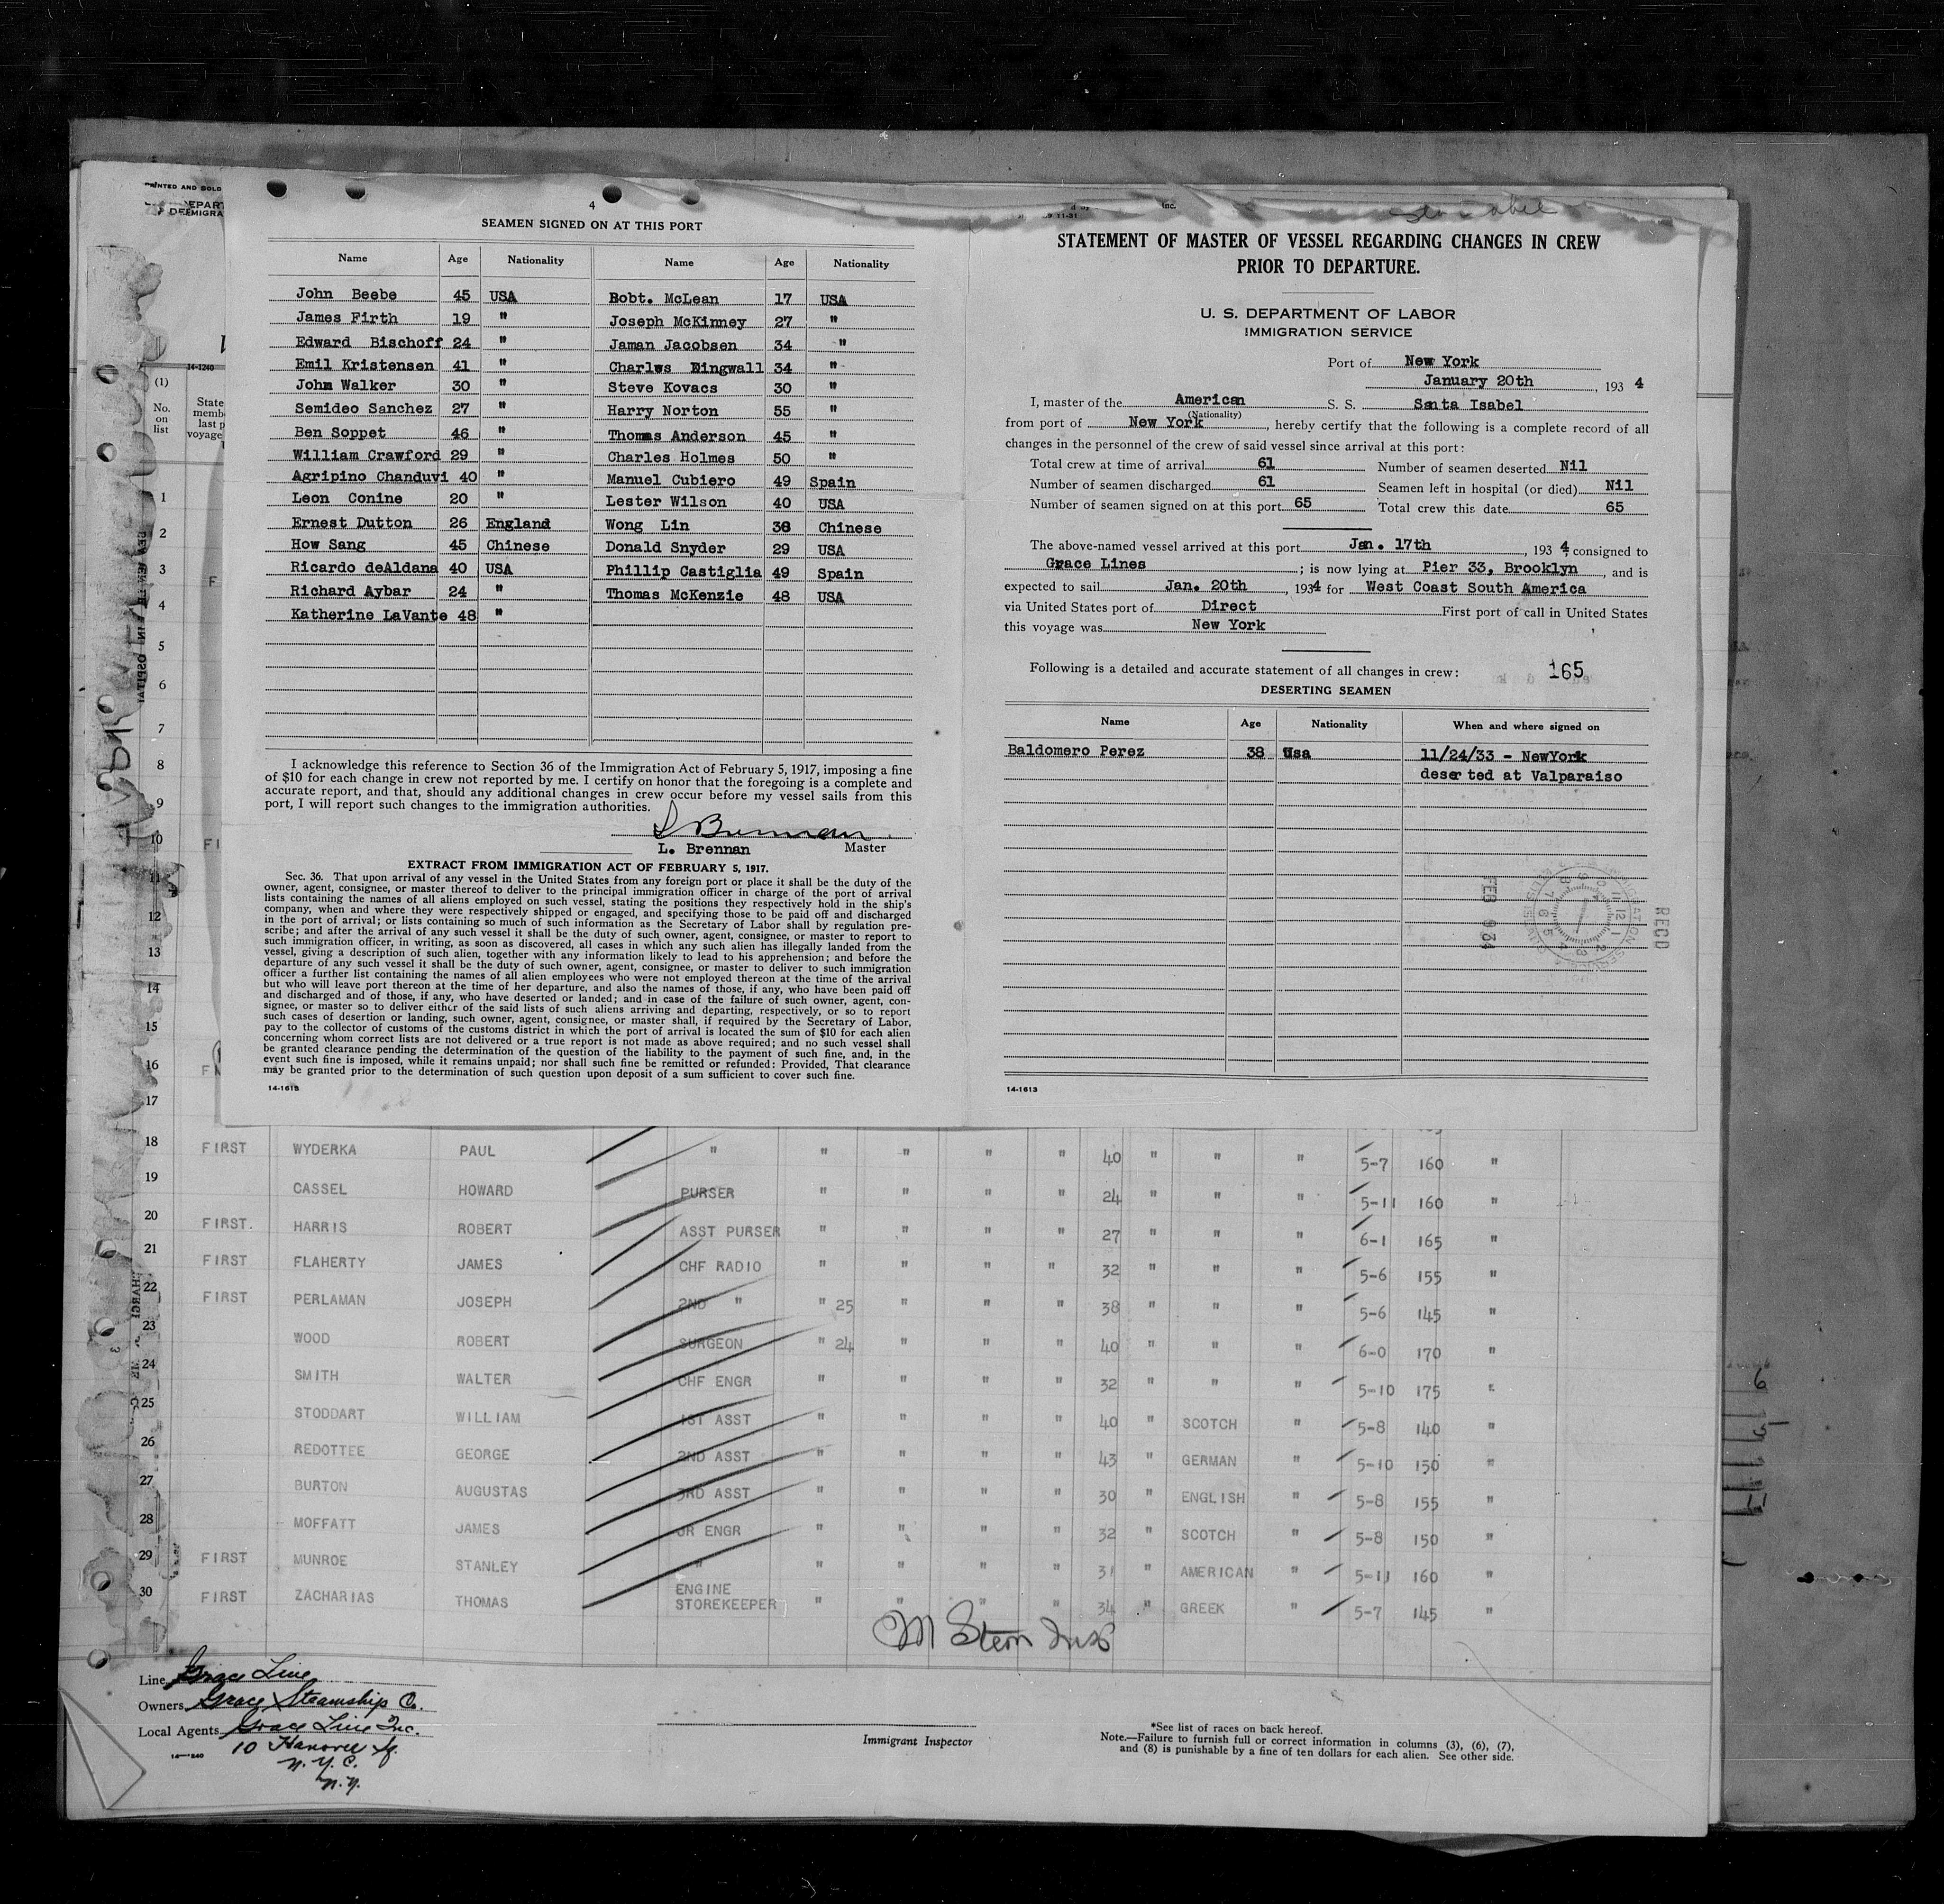 4
SEAMEN SIGNED ON AT THIS PORT
Name Age Nationality Name Age Nationality
John Beebe 45 USA Bobt. McLean 17 USA
James Firth 19 " Joseph McKinney 27 "
Edward Bischoff 24 " Jaman Jacobsen 34 "
Emil Kristensen 41 " Charlws Dingwall 34 "
John Walker 30 " Steve Kovacs 30 "
Semideo Sanchez 27 " Harry Norton 55 "
Ben Soppet 46 " Thomas Anderson 45 "
William Crawford 29 " Charles Holmes 50 "
Agripino Chanduvi 40 " Manuel Cubiero 49 Spain
Leon Conine 20 " Lester Wilson 40 USA
Ernest Dutton 26 England Wong Lin 38 Chinese
How Sang 45 Chinese Donald Snyder 29 USA
Ricardo deAldana 40 USA Phillip Castiglia 49 Spain
Richard Aybar 24 " Thomas McKenzie 48 USA
Katherine LaVante 48 "
I acknowledge this reference to Section 36 of the Immigration Act of February 5, 1917, imposing a fine
of $10 for each change in crew not reported by me. I certify on honor that the foregoing is a complete and
accurate report, and that, should any additional changes in crew occur before my vessel sails from this
port, I will report such changes to the immigration authorities.
L Brennan
L. Brennan Master
EXTRACT FROM IMMIGRATION ACT OF FEBRUARY 5, 1917.
Sec. 36. That upon arrival of any vessel in the United States from any foreign port or place it shall be the duty of the
owner, agent, consignee, or master thereof to deliver to the principal immigration officer in charge of the port of arrival
lists containing the names of all aliens employed on such vessel, stating the positions they respectively hold in the ship's
company, when and where they were respectively shipped or engaged, and specifying those to be paid off and discharged
in the port of arrival; or lists containing so much of such information as the Secretary of Labor shall by regulation pre-
scribe; and after the arrival of any such vessel it shall be the duty of such owner, agent, consignee, or master to report to
such immigration officer, in writing, as soon as discovered, all cases in which any such alien has illegally landed from the
vessel, giving a description of such alien, together with any information likely to lead to his apprehension; and before the
departure of any such vessel it shall be the duty of such owner, agent, consignee, or master to deliver to such immigration
officer a further list containing the names of all alien employees who were not employed thereon at the time of the arrival
but who will leave port thereon at the time of her departure, and also the names of those, if any, who have been paid off
and discharged and of those, if any, who have deserted or landed; and in case of the failure of such owner, agent, con-
signee, or master so to deliver either of the said lists of such aliens arriving and departing, respectively, or so to report
such cases of desertion or landing, such owner, agent, consignee, or master shall, if required by the Secretary of Labor,
pay to the collector of customs of the customs district in which the port of arrival is located the sum of $10 for each alien
concerning whom correct lists are not delivered or a true report is not made as above required; and no such vessel shall
be granted clearance pending the determination of the question of the liability to the payment of such fine, and, in the
event such fine is imposed, while it remains unpaid; nor shall such fine be remitted or refunded: Provided, That clearance
may be granted prior to the determination of such question upon deposit of a sum sufficient to cover such fine.
14-1613
STATEMENT OF MASTER OF VESSEL REGARDING CHANGES IN CREW
PRIOR TO DEPARTURE.
U. S. DEPARTMENT OF LABOR
IMMIGRATION SERVICE
Port of New York
January 20th, 1934
I, master of the American S. S. Santa Isabel
(Nationality)
from port of New York, hereby certify that the following is a complete record of all
changes in the personnel of the crew of said vessel since arrival at this port:
Total crew at time of arrival 61 Number of seamen deserted Nil
Number of seamen discharged 61 Seamen left in hospital (or died) Nil
Number of seamen signed on at this port 65 Total crew this date 65
The above-named vessel arrived at this port Jan. 17th, 1934, consigned to
Grace Lines; is now lying at Pier 33, Brooklyn, and is
expected to sail Jan. 20th, 1934 for West Coast South America
via United States port of Direct First port of call in United States
this voyage was New York
Following is a detailed and accurate statement of all changes in crew: 165
DESERTING SEAMEN
Name Age Nationality When and where signed on
Baldomero Perez 38 Usa 11/24/33 - NewYork
deserted at Valparaiso
RECD
FEB 9 34
14-1613
PRINTED AND SOLD
14-1240
(1)
No. on list
State
memb
last p
voyage
1
2
3 F
4
5
6
7
8
9
10 FI
11
12
13
14
15
16 F
17
18 FIRST WYDERKA PAUL " " " " " 40 " " " 5-7 160 "
19 CASSEL HOWARD PURSER " " " " 24 " " " 5-11 160 "
20 FIRST. HARRIS ROBERT ASST PURSER " " " " 27 " " " 6-1 165 "
21 FIRST FLAHERTY JAMES CHF RADIO " " " " 32 " " " 5-6 155 "
22 FIRST PERLAMAN JOSEPH 2ND " " 25 " " " 38 " " " 5-6 145 "
23 WOOD ROBERT SURGEON " 24 " " " 40 " " " 6-0 170 "
24 SMITH WALTER CHF ENGR " " " " 32 " " " 5-10 175 "
25 STODDART WILLIAM 1ST ASST " " " " 40 " SCOTCH " 5-8 140 "
26 REDOTTEE GEORGE 2ND ASST " " " " 43 " GERMAN " 5-10 150 "
27 BURTON AUGUSTAS 3RD ASST " " " " 30 " ENGLISH " 5-8 155 "
28 MOFFATT JAMES JR ENGR " " " " 32 " SCOTCH " 5-8 150 "
29 FIRST MUNROE STANLEY " " " " " 31 " AMERICAN " 5-11 160 "
30 FIRST ZACHARIAS THOMAS ENGINE STOREKEEPER " " " " 34 " GREEK " 5-7 145 "
M Stern Insp
Line Grace Line
Owners Grace Steamship Co.
Local Agents Grace Line Inc.
10 Hanover Sq.
N.Y.C.
N.Y.
Immigrant Inspector
*See list of races on back hereof.
Note.—Failure to furnish full or correct information in columns (3), (6), (7),
and (8) is punishable by a fine of ten dollars for each alien. See other side.